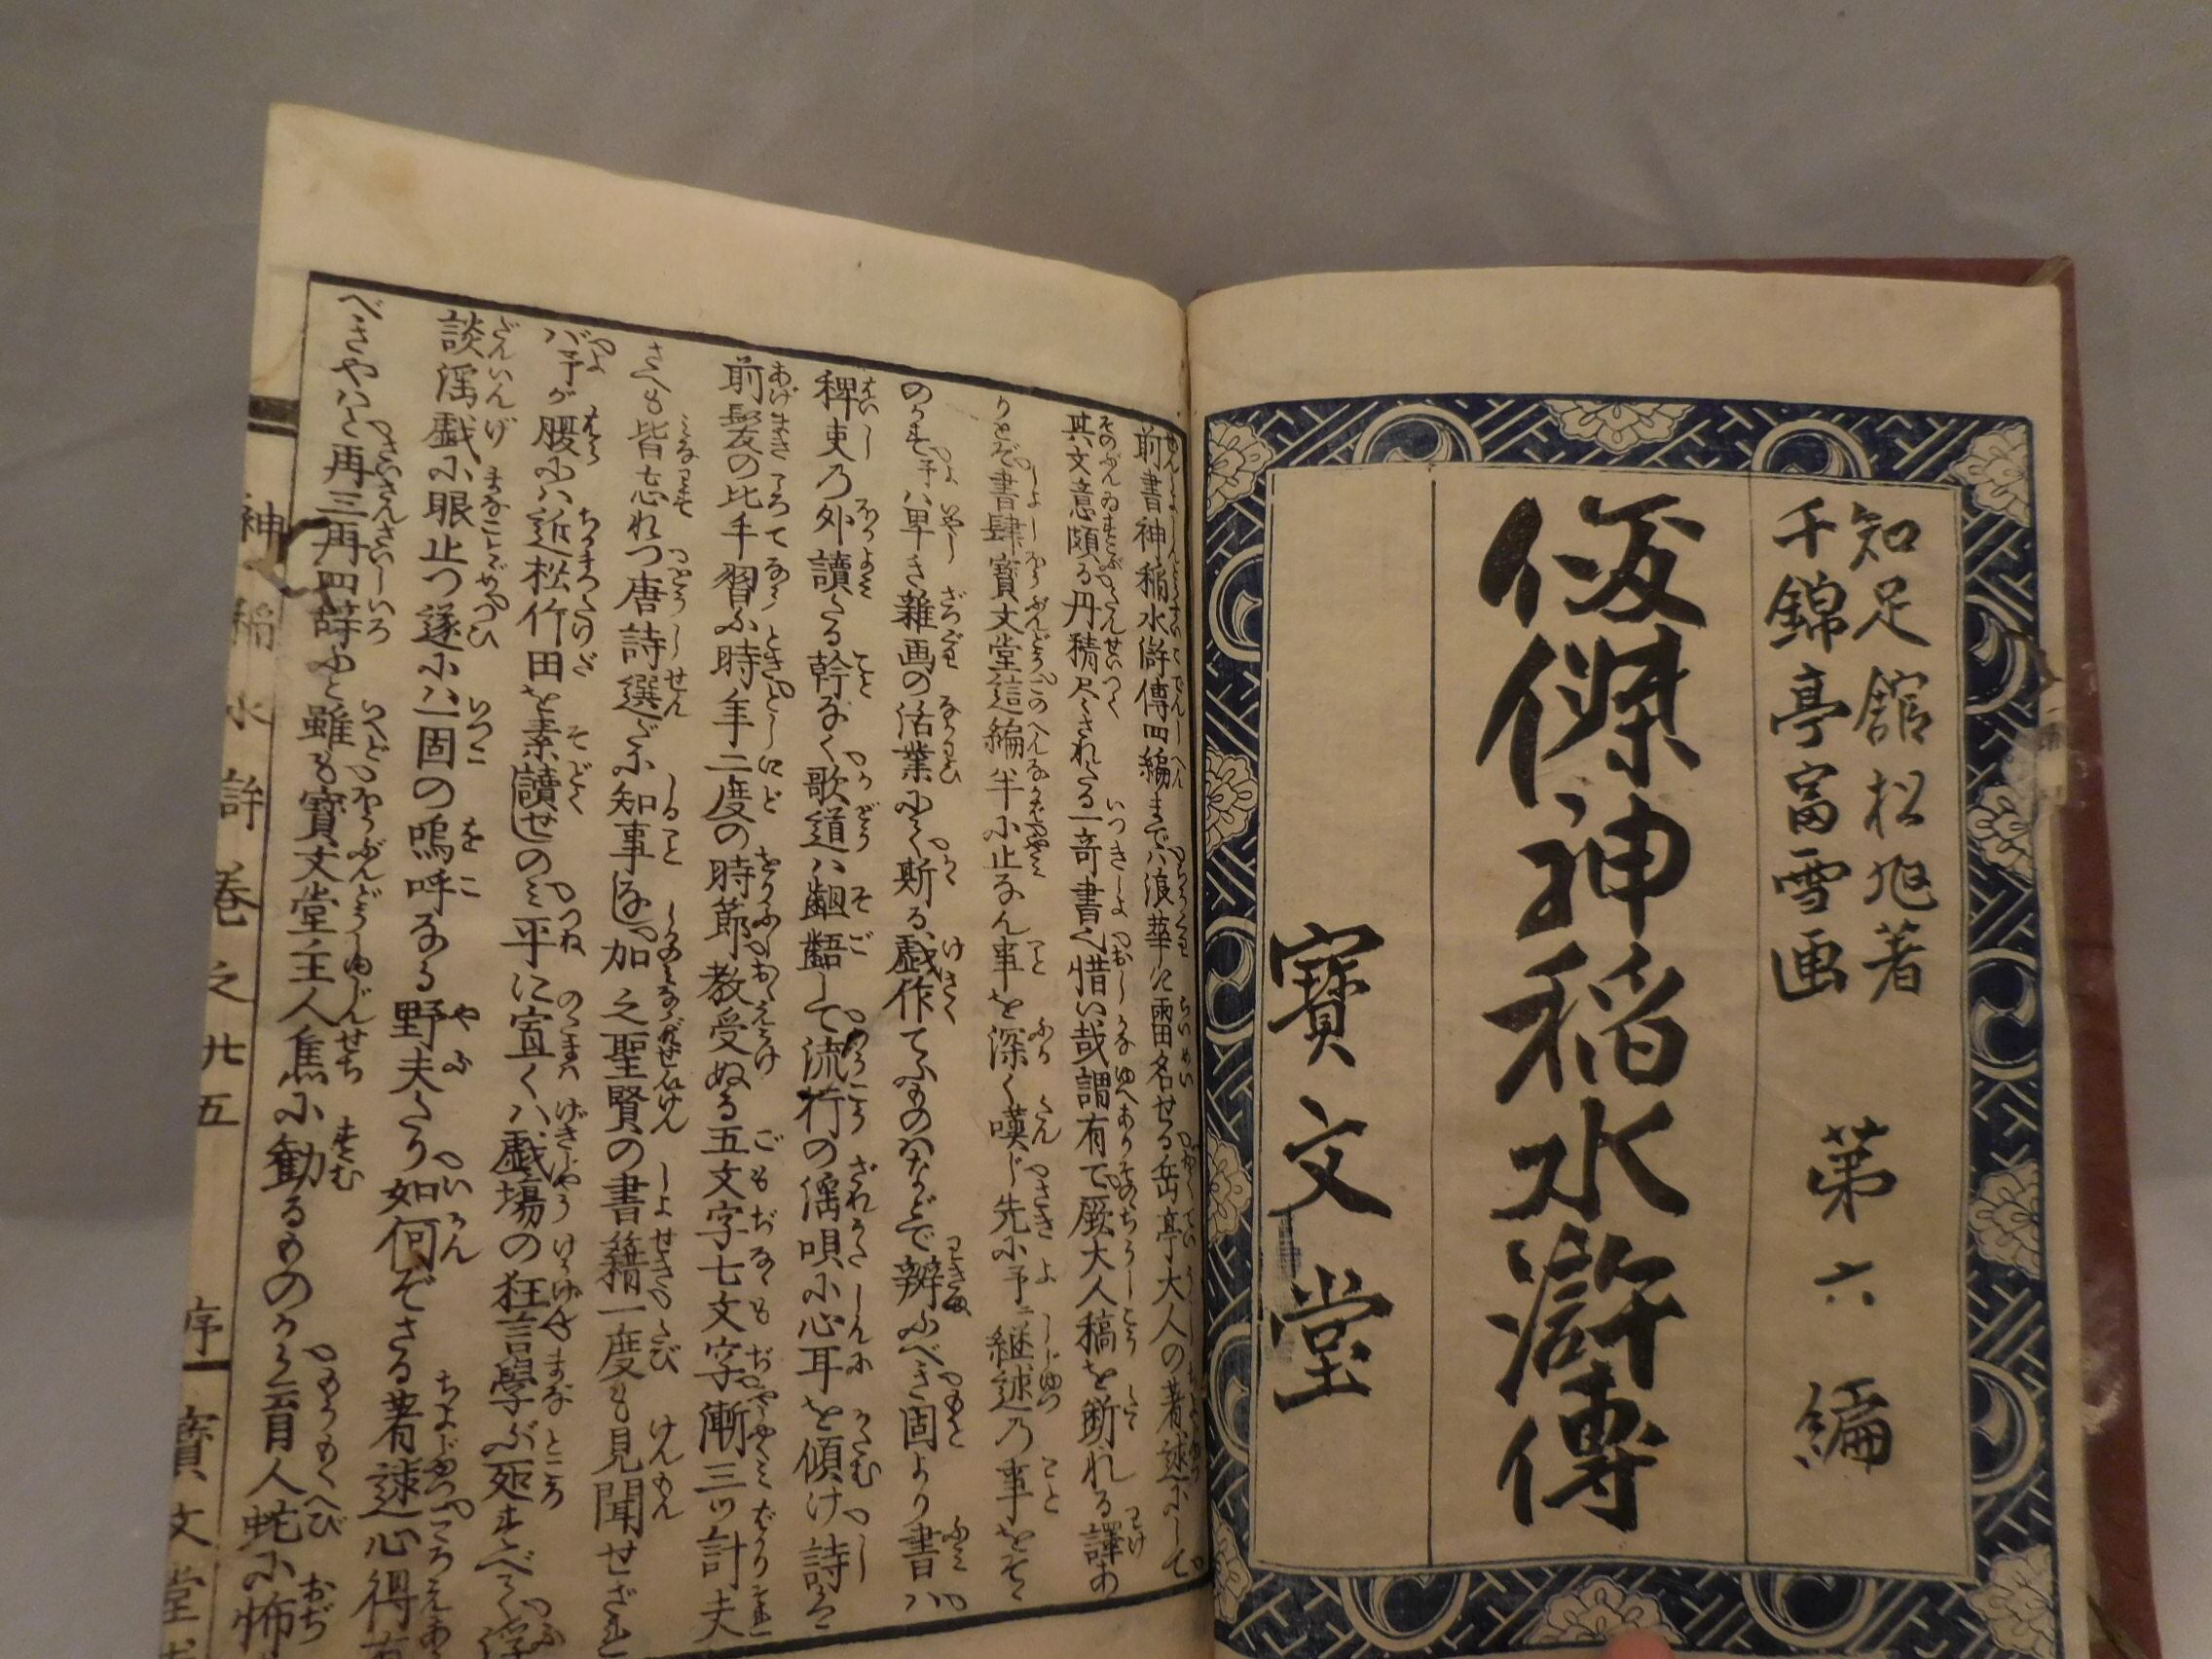 知足舘松旭著
千錦亭富雪画
第六編
俊傑神稲水滸傳
寶文堂
前書神稲水滸傳四編まで八浪華に雷名せる岳亭大人の著述にして
其文意頗る丹精尽されたる一奇書也惜い哉謂有て厥大人稿を断れる譯あ
りとぞ書肆寶文堂這編半に止なん事を深く嘆じ先に予に継述乃事をそゝ
のかす予ハ早き雑画の活業にて斯る戯作てふものハなどで辨ふべき固より書ハ
稗吏乃外讀たる幹なく歌道ハ齟齬して流行の
前髪の比手習ふ時年二度の時節教受ぬる五文字七文字漸三ツ計夫
さへも皆忘れつ唐詩選だに知事なし加之聖賢の書籍一度も見聞せざれ
バ予が腹にハ近松竹田を素讀せのミ平に宣くハ戯場の狂言學ぶ
談淫戯に眼止つ遂にハ一固の嗚呼なる野夫たり如何ぞさる著述心得
べきやハと再三再四辞ふと雖も寶文堂主人焦に勧るものから盲人蛇に怖
神稲水滸巻之廿五 序一 寶文堂